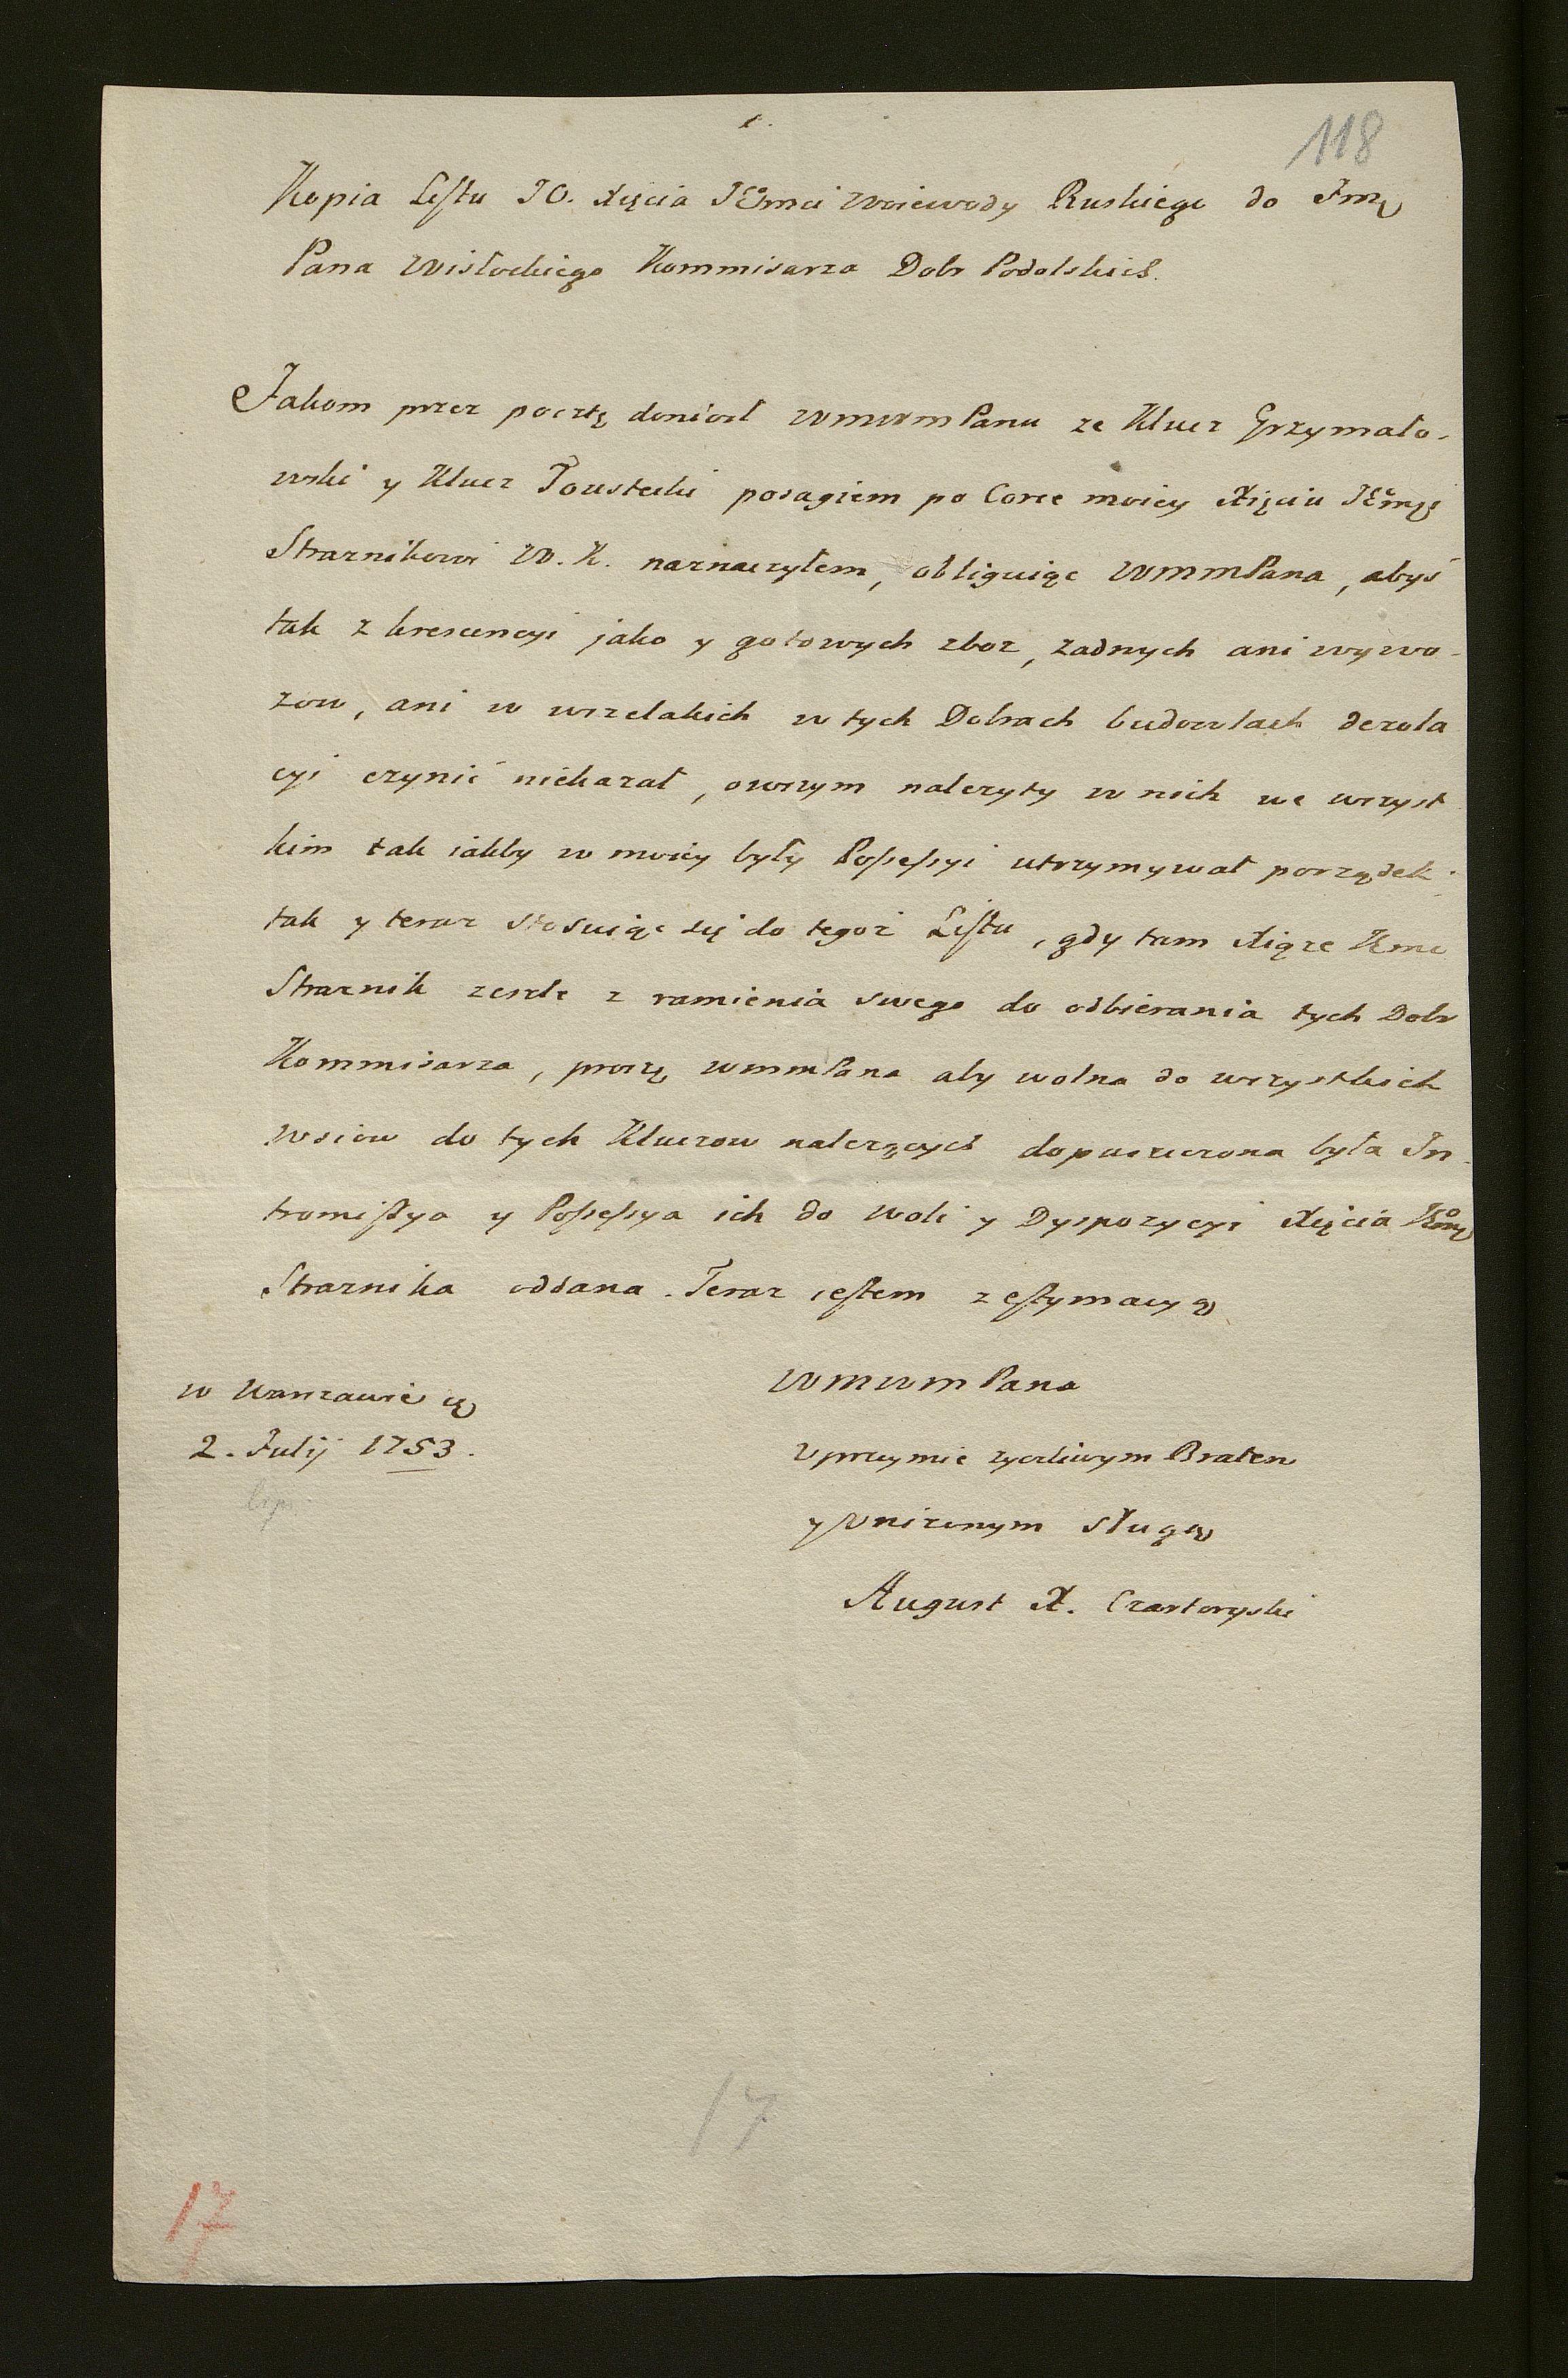 1.
118
Kopia Listu JO. Xięcia JEmci Woiewody Ruskiego do Jmę
Pana Wisłockiego Kommisarza Dobr Podolskich.
Jakom przez pocztę doniosł WMWMPanu ze Klucz Grzymało-
wski y Klucz Toustecki posagiem po Corce moiey Xięciu JEmę
Straznikowi W. K. naznaczyłem, obliguiąc WMMPana, abyś
tak z krescencyi jako y gotowych zboz, zadnych ani wywo-
zow, ani w wszelakich w tych Dobrach budowlach dezola
cyi czynić niekazał, owszym nalezyty w nich we wszyst
kim tak iakby w moiey były Possessyi utrzymywał porządek;
tak y teraz stosuiąc się do tegoż Listu, gdy tam Xiąze Jmc
Straznik zeszle z ramienia swego do odbierania tych Dobr
Kommisarza, proszę WMMPana aby wolna do wszystkich
wsiow do tych Kluczow nalezących dopuszczona była In-
tromissya y Possessya ich do woli y Dyspozycyi Xięcia JEmę
Straznika oddana. Teraz iestem z estymacyą
WMWMPana
w Warszawie die
2. Julij 1753.
lip.
Uprzymie zyczliwym Bratem
y Unizonym sługą
August X. Czartoryski
17
17